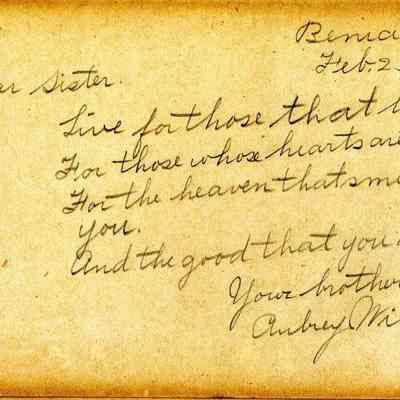 Benic
Feb. 2
ar Sister.
Live for those that l
For those whose hearts are
For the heaven thats me
you.
And the good that you
Your brother
Aubrey Wi